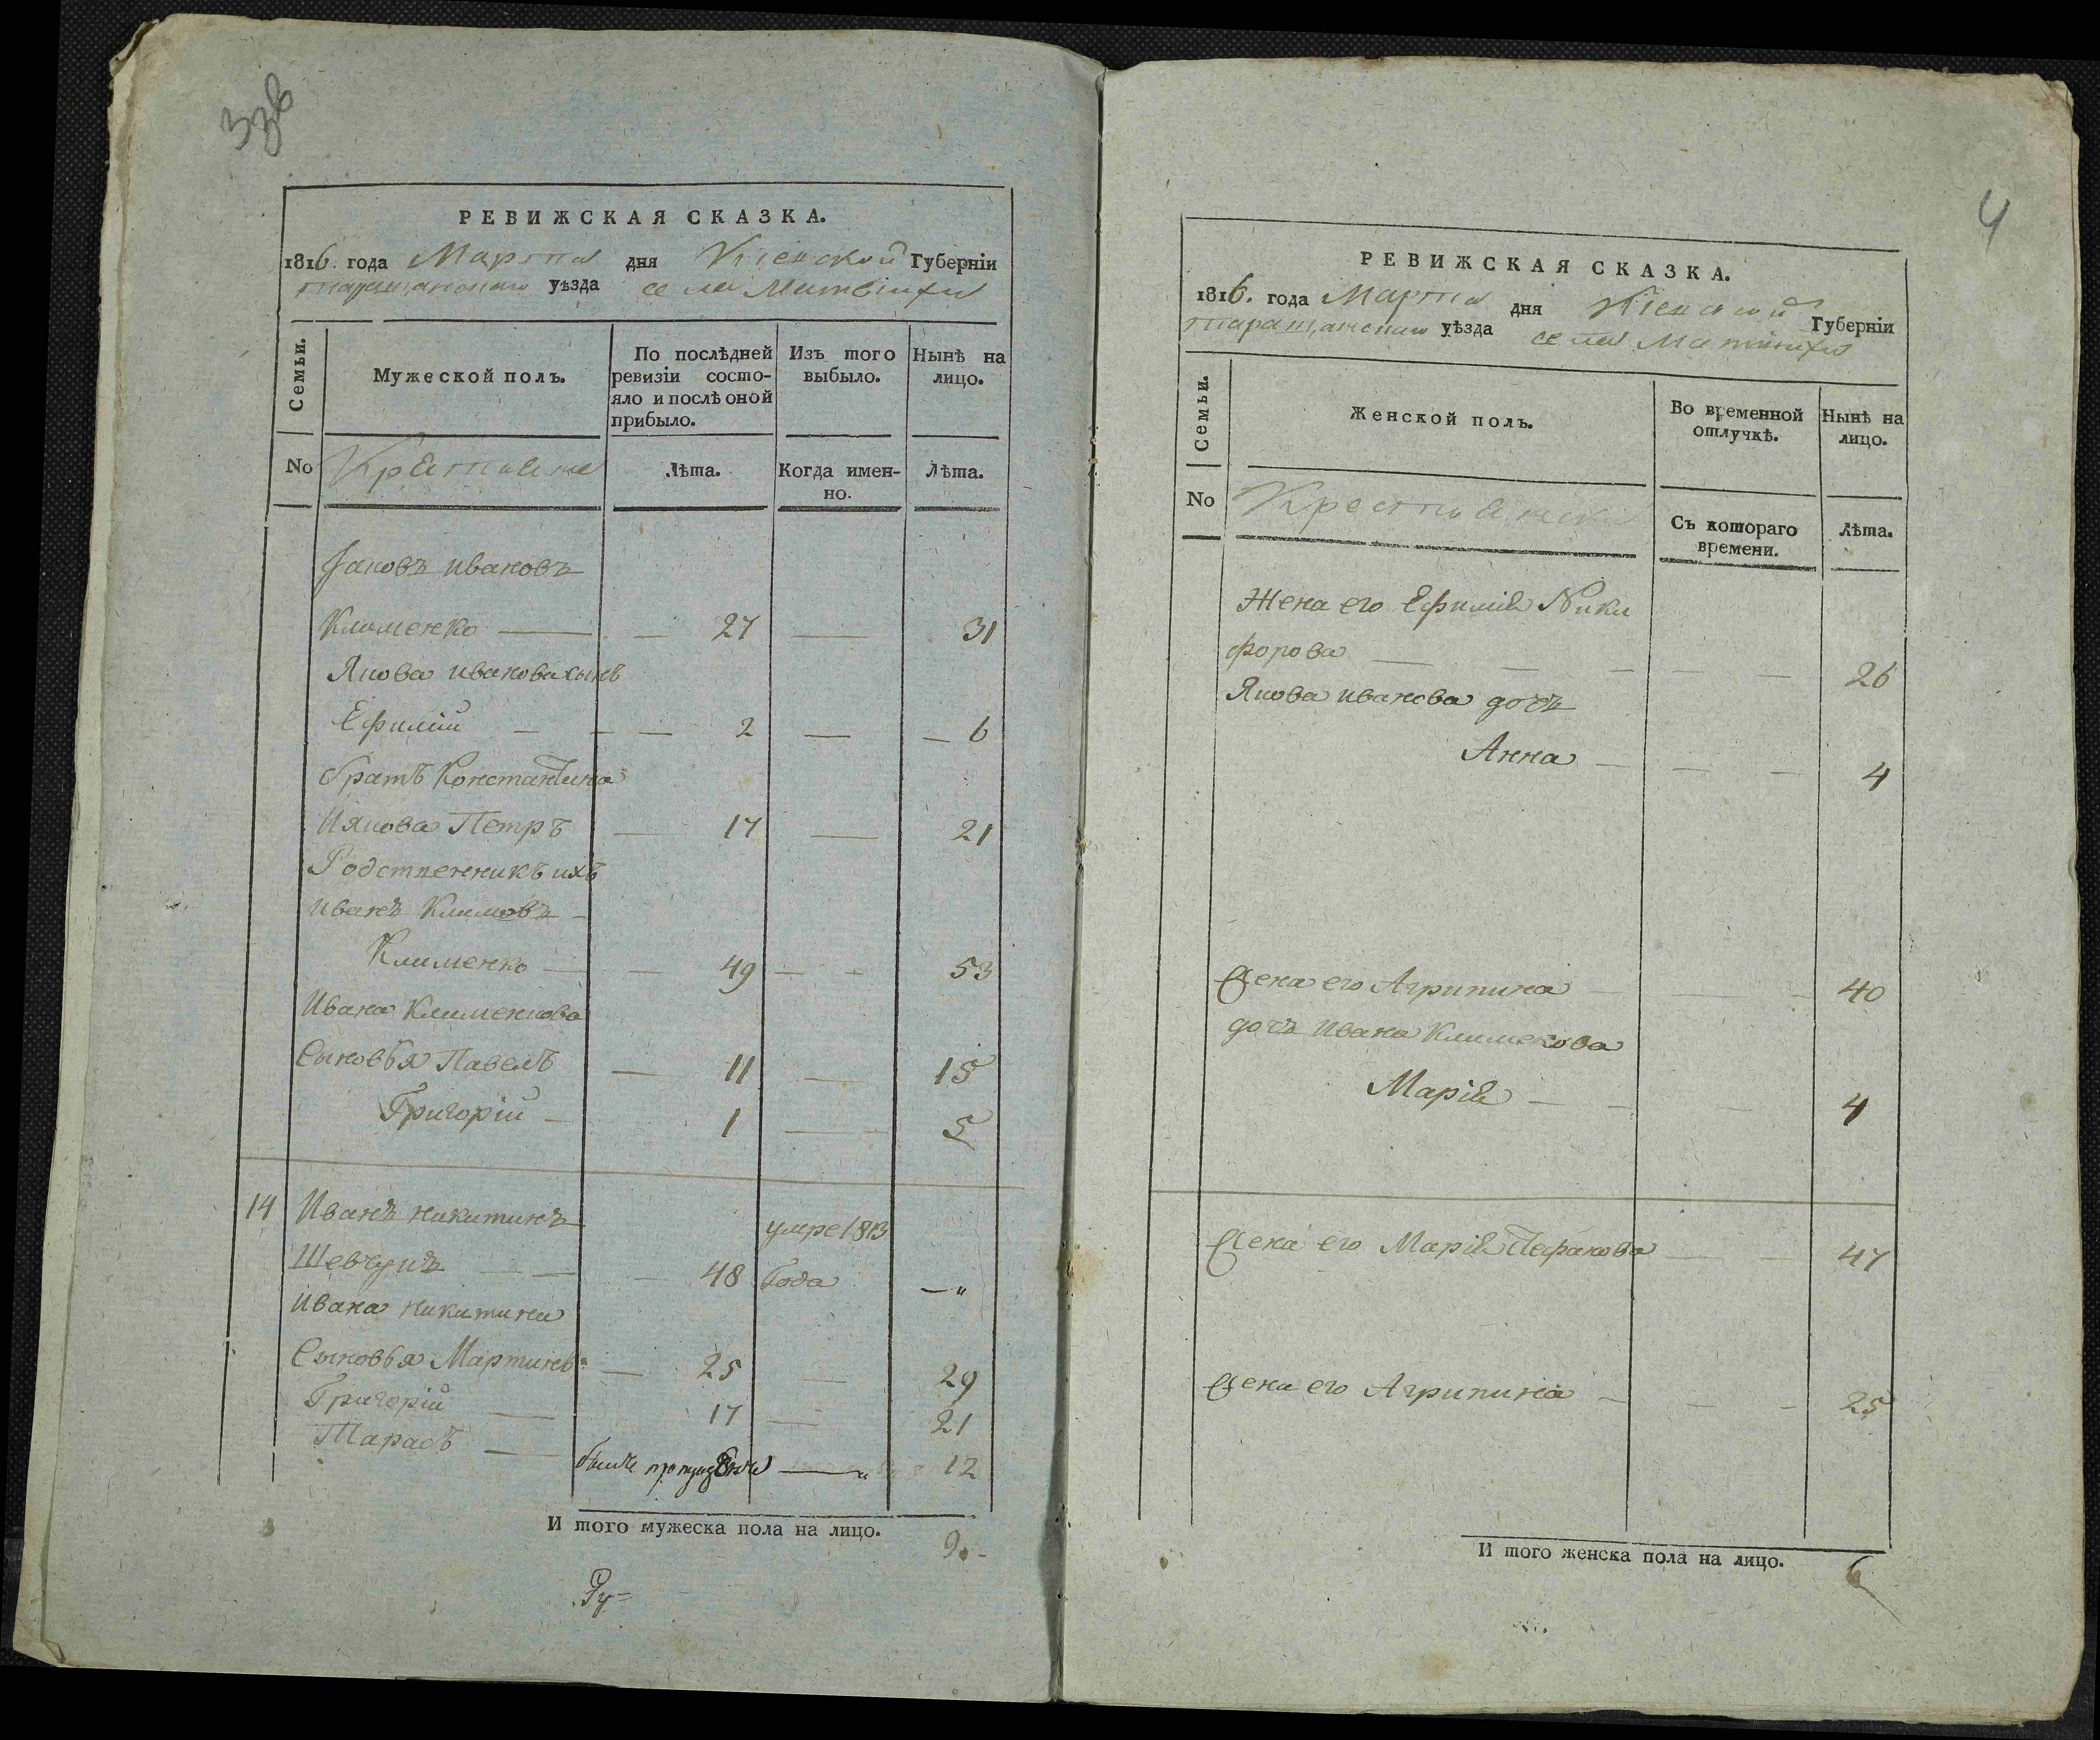 3зв
РЕВИЖСКАЯ СКАЗКА.
1816. года Марта дня Кіевской Губерніи
таращанскаго уѣзда села Матвіихи
Семьи.
Мужеской полъ.
По послѣдней ревизіи состо-
яло и послѣ оной
прибыло.
Изъ того
выбыло.
Нынѣ на
лицо.
No
Крестьяне
Лѣта.
Когда имен-
но.
Лѣта.
Яковъ ивановъ
Клименко — 27 — 31
Якова иванова сынъ
Ефимій — 2 — 6
братъ Константина
Иякова Петръ — 17 — 21
Родственникъ ихъ
иванъ Климовъ
Клименко — 49 — 53
Ивана Клименкова
Сыновья Павелъ — 11 — 15
Григорій — 1 — 5
14 Иванъ никитинъ умре 1813
Шевчукъ — 48 Года — "
ивана никитина
Сыновья Мартинъ — 25 — 29
Григорій — 17 — 21
Тарасъ — 12
И того мужеска пола на лицо. 9.
4
РЕВИЖСКАЯ СКАЗКА.
1816. года Марта дня Кіевской Губерніи
таращанскаго уѣзда села Матвіихи
Семьи.
Женской полъ.
Во временной
отлучкѣ.
Нынѣ на
лицо.
No
Съ котораго
времени.
Лѣта.
Жена его Ефимія Ники
форова — 26
Якова иванова дочь
Анна — 4
Жена его Агрипина — 40
дочь ивана Клименкова
Марія — 4
Жена его Марія — 47
Жена его Агрипина — 25
И того женска пола на лицо. 6